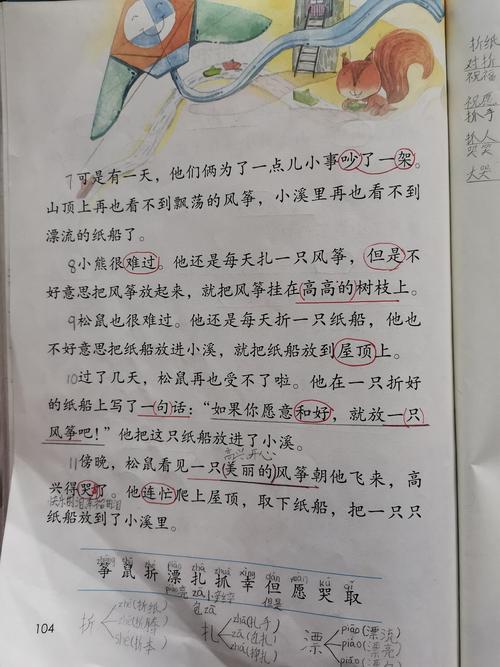 折纸
对折
祝福
祝愿
抓手
抓人
哭哭
大哭
7可是有一天，他们俩为了一点儿小事吵了一架。
山顶上再也看不到飘荡的风筝，小溪里再也看不到
漂流的纸船了。
8小熊很难过。他还是每天扎一只风筝，但是不
好意思把风筝放起来，就把风筝挂在高高的树枝上。
9松鼠也很难过。他还是每天折一只纸船，他也
不好意思把纸船放进小溪，就把纸船放到屋顶上。
10过了几天，松鼠再也受不了啦。他在一只折好
的纸船上写了一句话：“如果你愿意和好，就放一只
风筝吧！”他把这只纸船放进了小溪。
高兴 开心
11傍晚，松鼠看见一只美丽的风筝朝他飞来，高
兴得哭了。他连忙爬上屋顶，取下纸船，把一只只
纸船放到了小溪里。
zhēng shǔ zhé piāo zhā zhuā xìng dàn yuàn kū qǔ
筝 鼠 折 漂 扎 抓 幸 但 愿 哭 取
但是
折 zhé(折纸) zhē(折腾) shé(折本)
扎 zhā(扎手) zā(包扎) zhá(挣扎)
漂 piāo(漂流) piào(漂亮)
104